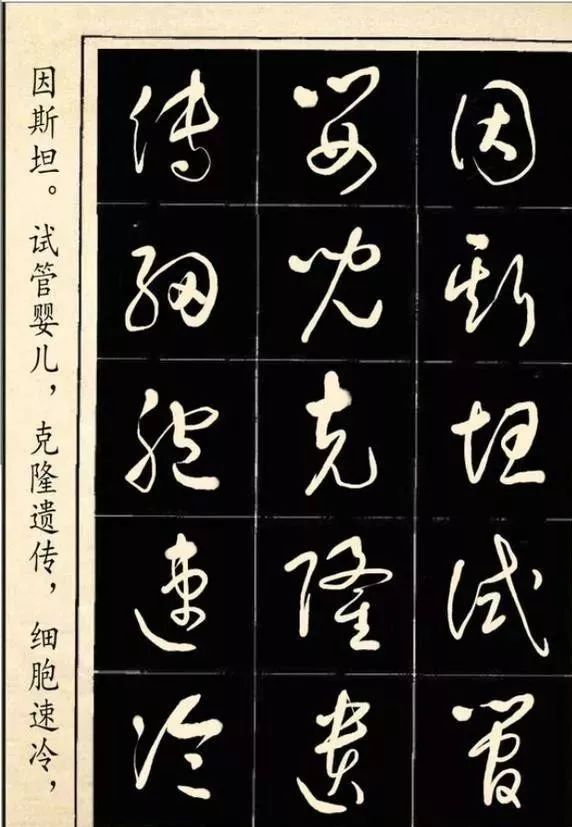 因斯坦试管
婴儿克隆遗
传细胞速冷
因斯坦。试管婴儿，克隆遗传，细胞速冷，